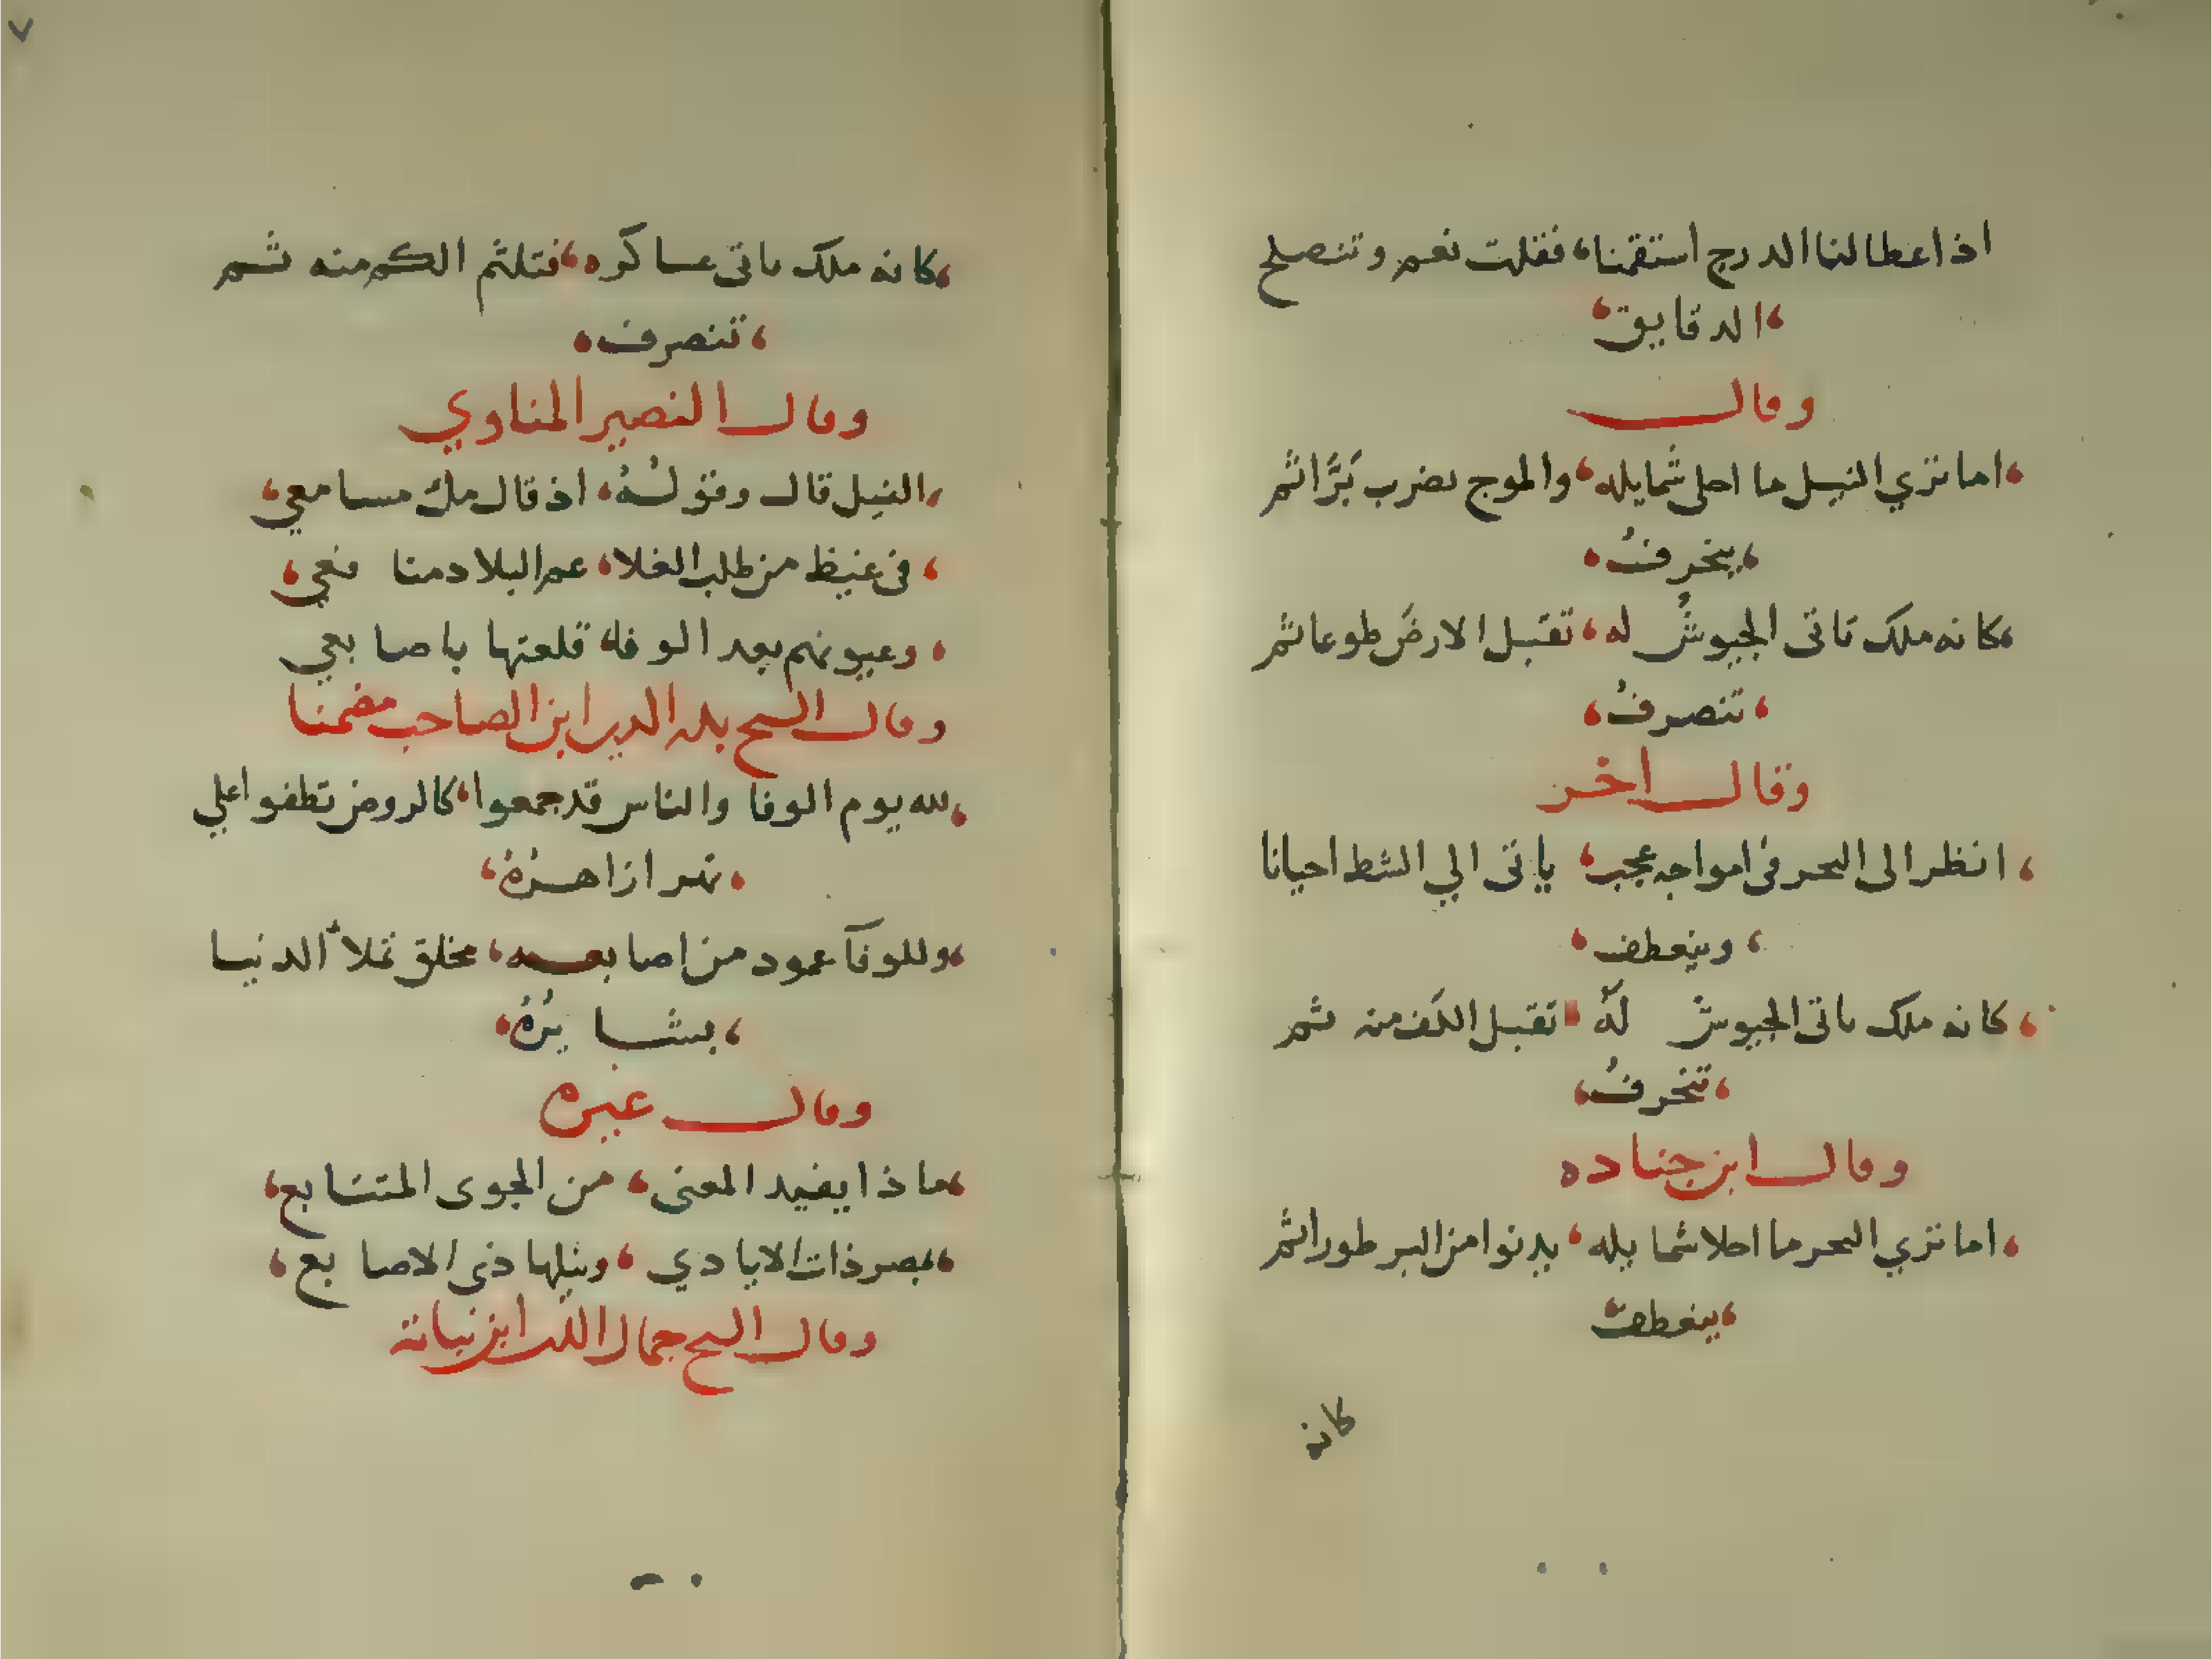 اذا عطا لنا الدرج استقمنا، فقلت نعم وتنصلح
الدقايق
وقال
اما تري النيل ما احلى شمايله، والموج يضرب بَرًّا ثم
ينحرفُ
كانه ملك تاتى الجيوشُ له، تقبل الارضَ طوعا ثم
تنصرفُ
وقال اخر
انظر الى البحر فى امواجه عجب، ياتى الي الشط احيانا
وينعطف
كانه ملك ياتى الجيوش له، تقبل الكف منه ثم
تنحرفُ
وقال ابن جناده
اما تري البحر ما احلا شمايله، يدنوا من البر طورا ثم
ينعطف
كانه
٧
كانه ملك ياتى عساكره، فتلثم الكم منه ثم
تنصرف
وقال النصير المناوي
النيل قال وقولُهُ، اذ قال ملئ مسامعي
فى غيظ من طلب الغلا، عم البلاد منافعي
وعيونهم بعد الوفا، قلعتها باصابعي
وقال الشيخ بدر الدين ابن الصاحب مضمنا
لله يوم الوفا والناس قد جمعوا، كالروض تطفوا علي
نهر ازاهرُهُ
وللوفآ عمود من اصابعه، مخلق تملأ الدنيا
بشايرُهُ
وقال غيره
ماذا يفيد المعنى، من الجوى المتتابع
بمصر ذات الايادي، ونيلها ذى الاصابع
وقال الشيخ جمال الدين ابن نباته